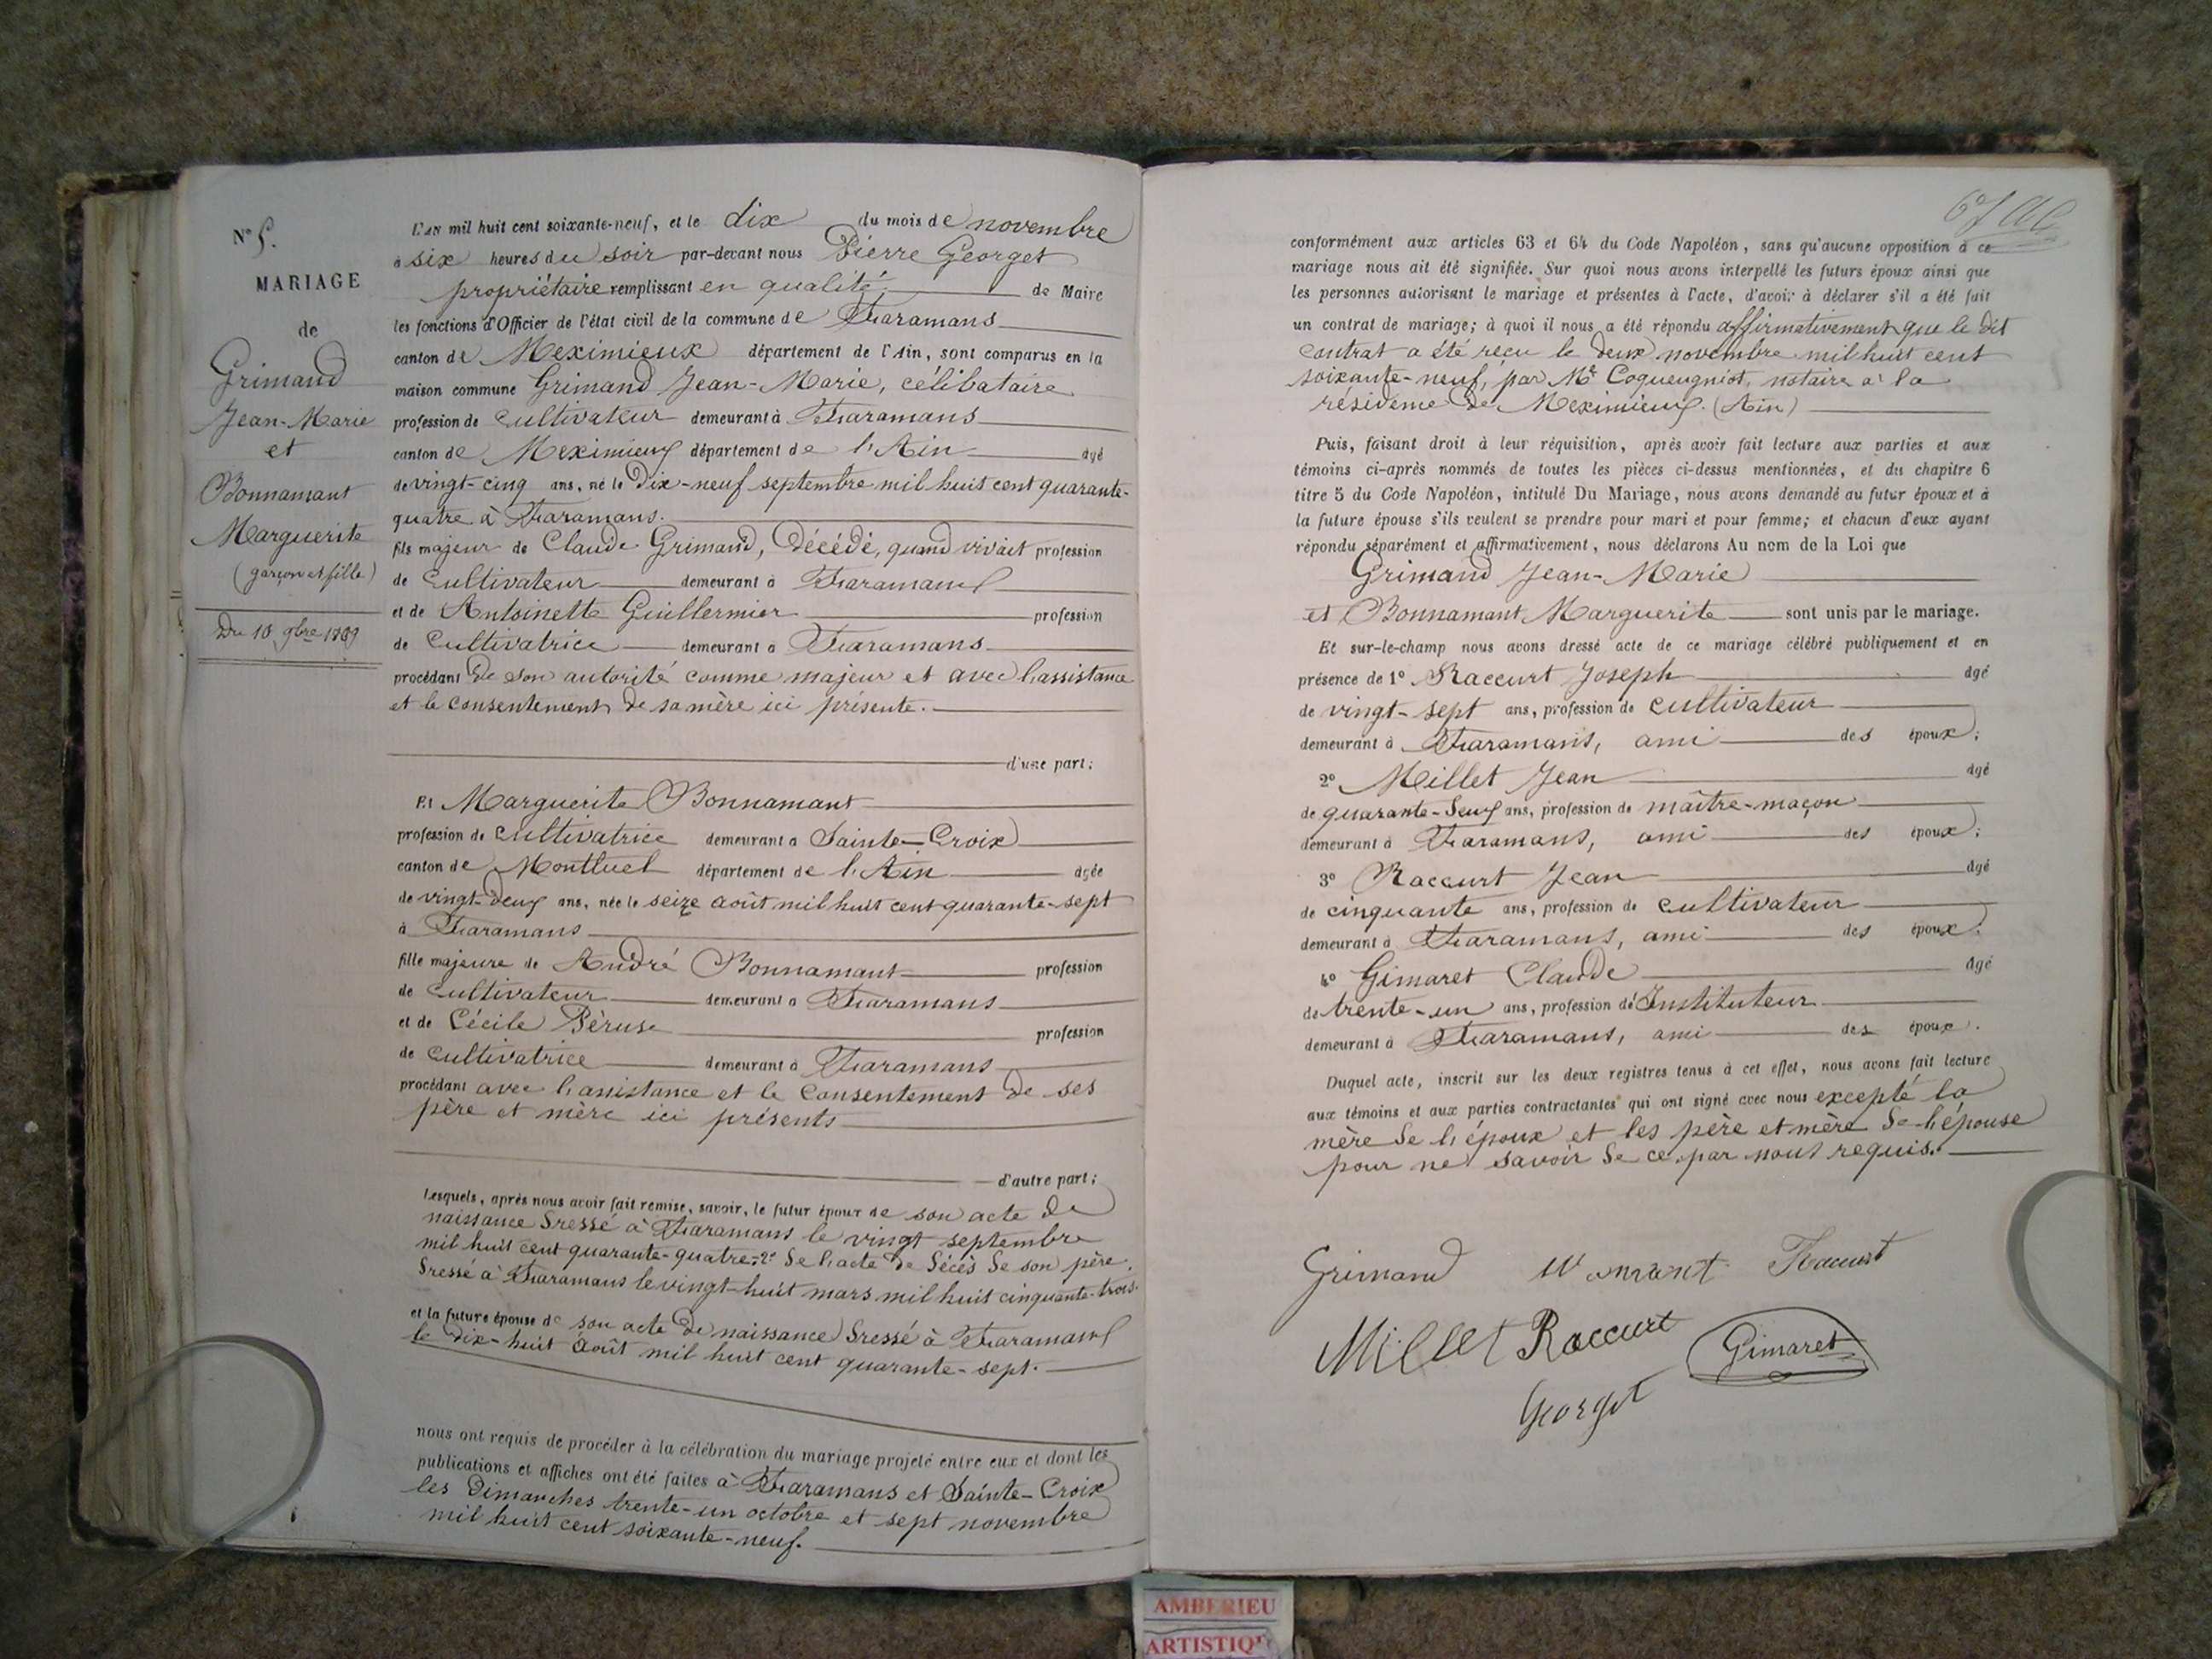 N° 5.
MARIAGE
de
Grimand
Jean-Marie
et
Bonnamant
Marguerite
(garçon et fille)
Du 10 9bre 1869
L'AN mil huit cent soixante-neuf, et le dix du mois de novembre
à six heures du soir par-devant nous Pierre Georget
propriétaire remplissant en qualité de Maire
les fonctions d'Officier de l'état civil de la commune de Faramans
canton de Meximieux département de l'Ain, sont comparus en la
maison commune Grimand Jean-Marie, célibataire
profession de cultivateur demeurant à Faramans
canton de Meximieux département de l'Ain âgé
de vingt-cinq ans, né le Dix-neuf septembre mil huit cent quarante-
quatre à Faramans.
fils majeur de Claude Grimand, Décédé, quand vivait profession
de Cultivateur demeurant à Faramans
et de Antoinette Guillermier profession
de Cultivatrice demeurant à Faramans
procédant de son autorité comme majeur et avec l'assistance
et le consentement de sa mère ici présente.
d'une part;
Et Marguerite Bonnamant
profession de Cultivatrice demeurant à Sainte-Croix
canton de Montluel département de l'Ain âgée
de vingt-deux ans, née le seize août mil huit cent quarante-sept
à Faramans
fille majeure de André Bonnamant profession
de Cultivateur demeurant à Faramans
et de Cécile Péruse profession
de Cultivatrice demeurant à Faramans
procédant avec l'assistance et le Consentement de ses
père et mère ici présents
d'autre part;
Lesquels, après nous avoir fait remise, savoir, le futur époux de son acte de
naissance dressé à Faramans le vingt septembre
mil huit cent quarante-quatre; 2° de l'acte de décès de son père,
dressé à Faramans le vingt-huit mars mil huit cinquante-trois.
et la future épouse de son acte de naissance dressé à Faramans
le dix-huit août mil huit cent quarante-sept.
nous ont requis de procéder à la célébration du mariage projeté entre eux et dont les
publications et affiches ont été faites à Faramans et Sainte-Croix
les Dimanches trente-un octobre et sept novembre
mil huit cent soixante-neuf.
conformément aux articles 63 et 64 du Code Napoléon, sans qu'aucune opposition à ce
mariage nous ait été signifiée. Sur quoi nous avons interpellé les futurs époux ainsi que
les personnes autorisant le mariage et présentes à l'acte, d'avoir à déclarer s'il a été fait
un contrat de mariage; à quoi il nous a été répondu affirmativement que le dit
contrat a été reçu le deux novembre mil huit cent
soixante-neuf, par Me Coqueugniot, notaire à la
résidence de Meximieux. (Ain)
Puis, faisant droit à leur réquisition, après avoir fait lecture aux parties et aux
témoins ci-après nommés de toutes les pièces ci-dessus mentionnées, et du chapitre 6
titre 5 du Code Napoléon, intitulé Du Mariage, nous avons demandé au futur époux et à
la future épouse s'ils veulent se prendre pour mari et pour femme; et chacun d'eux ayant
répondu séparément et affirmativement, nous déclarons Au nom de la Loi que
Grimand Jean-Marie
et Bonnamant Marguerite sont unis par le mariage.
Et sur-le-champ nous avons dressé acte de ce mariage célébré publiquement et en
présence de 1° Raccurt Joseph âgé
de vingt-sept ans, profession de cultivateur
demeurant à Faramans, ami des époux;
2° Millet Jean âgé
de quarante-deux ans, profession de maître-maçon
demeurant à Faramans, ami des époux;
3° Raccurt Jean âgé
de cinquante ans, profession de cultivateur
demeurant à Faramans, ami des époux.
4° Gimaret Claude âgé
de trente-un ans, profession d'Instituteur
demeurant à Faramans, ami des époux.
Duquel acte, inscrit sur les deux registres tenus à cet effet, nous avons fait lecture
aux témoins et aux parties contractantes qui ont signé avec nous excepté la
mère de l'époux et les père et mère de l'épouse
pour ne savoir de ce par nous requis.
Grimand Raccurt
Millet Raccurt Gimaret
Georget
AMBERIEU
ARTISTIQU